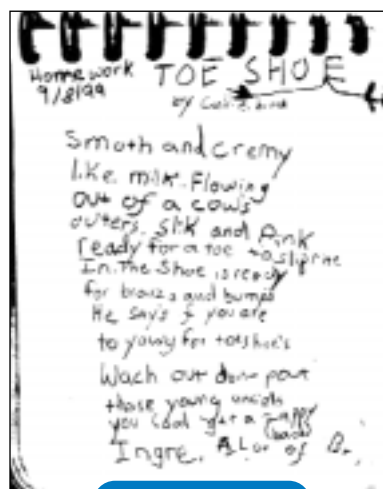 Homework
9/8/99
TOE SHOE
by
Smoth and cremy
like milk. Flowing
out of a cows
outers. Silk and Pink
ready for a toe to slip ne
In. The Shoe is ready
for and bumps
He Say's if you are
to young for toeshoe's
Wach out done pout
those young
you a
Ingre. A Lot of